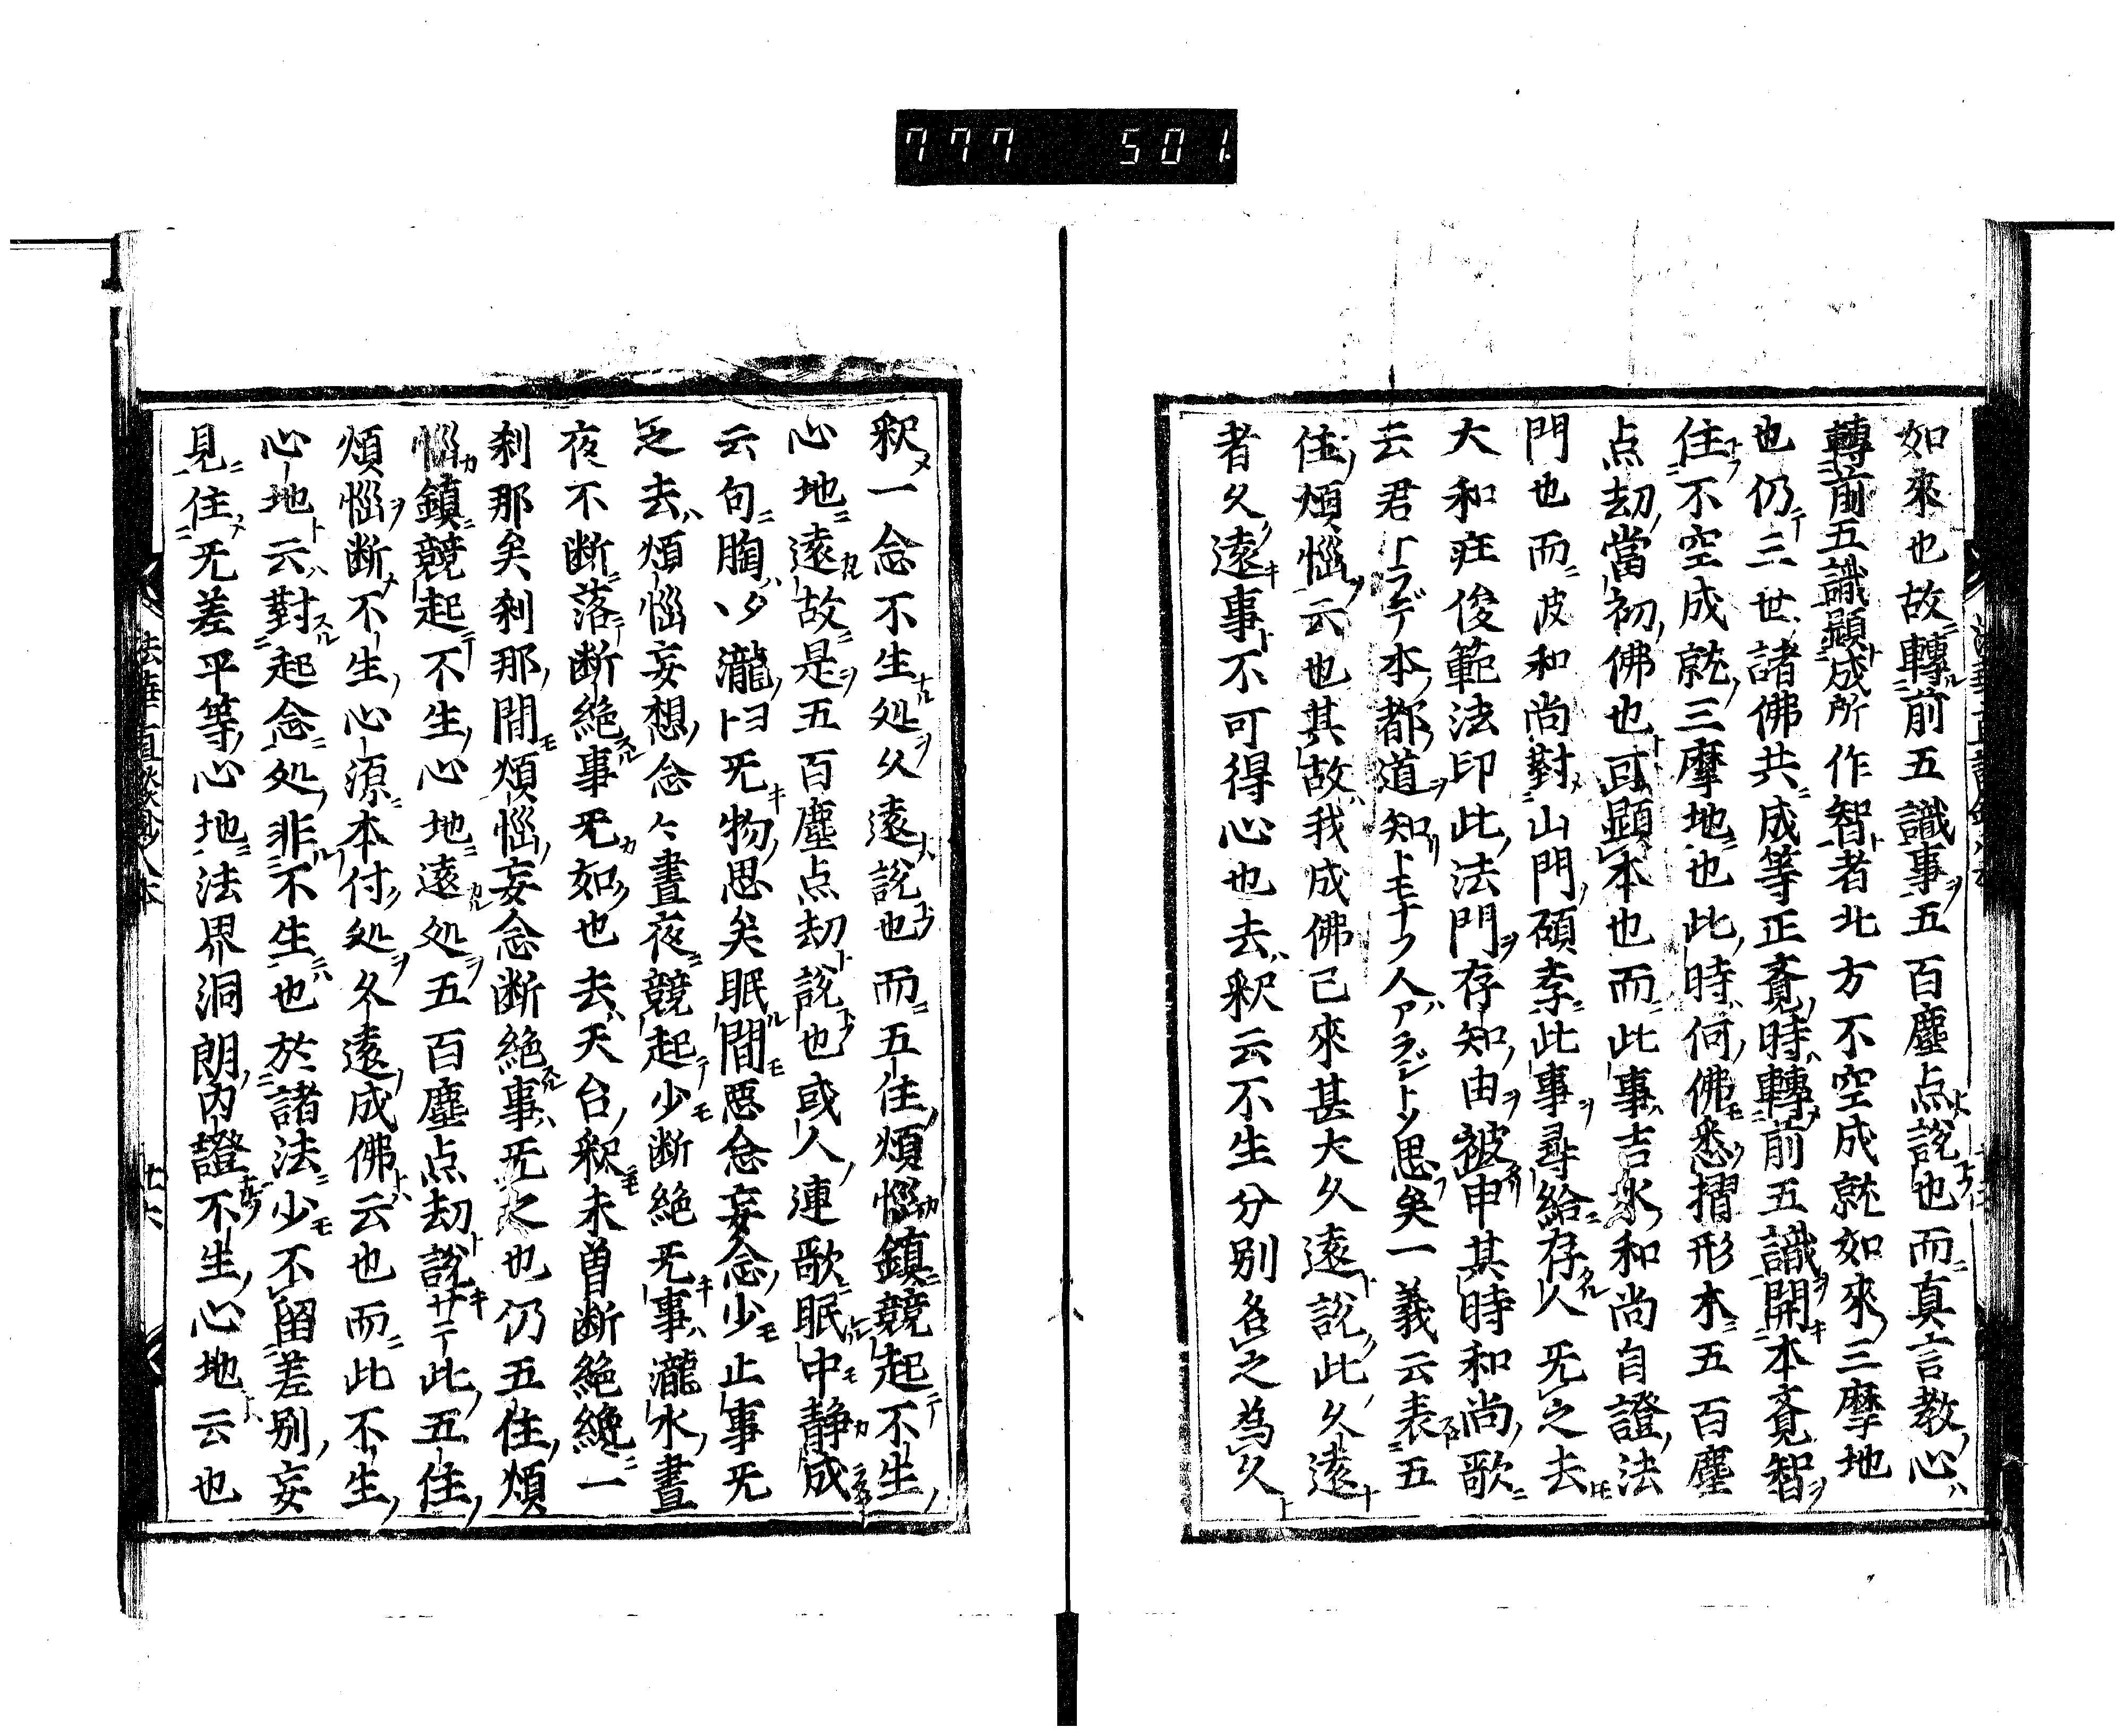 777 501
如來也故轉前五識事五百塵点說也而真言教心
轉前五識顕成所作智者北方不空成就如來三摩地
也仍三世諸佛共成等正覔時轉前五識開本覔智
住不空成就三摩地也此時何佛悉摺形木五百塵
点劫當初佛也可顕本也而此事吉水和尚自證法
門也而波和尚對山門碩李此事尋給存人无之去
大和庄俊範法印此法門存知由被申其時和尚歌
云君トフデ本都道知トモナフ人アラジトソ思矣一義云表五
住煩惱云也其故我成佛已來甚大久遠說此久遠
者久遠事不可得心也去釈云不生分別名之為久
釈一念不生処久遠說也而五住煩惱鎮競起不生
心地遠故是五百塵点劫說也或人連歌眠中静成
云句胸瀧トヨ无物思矣眠間悪念妄念少止事无
之去煩惱妄想念々晝夜競起少断絶无事瀧水晝
夜不断落断絶事无如也去天台釈未曽断絶纔一
刹那矣刹那間煩惱妄念断絶事无之也仍五住煩
惱鎮競起不生心地遠処五百塵点劫說サテ此五住
煩惱断不生心源本付処久遠成佛云也而此不生
心地云對起念処非不生也於諸法少不留差別妄
見住无差平等心地法界洞朗内證不生心地云也